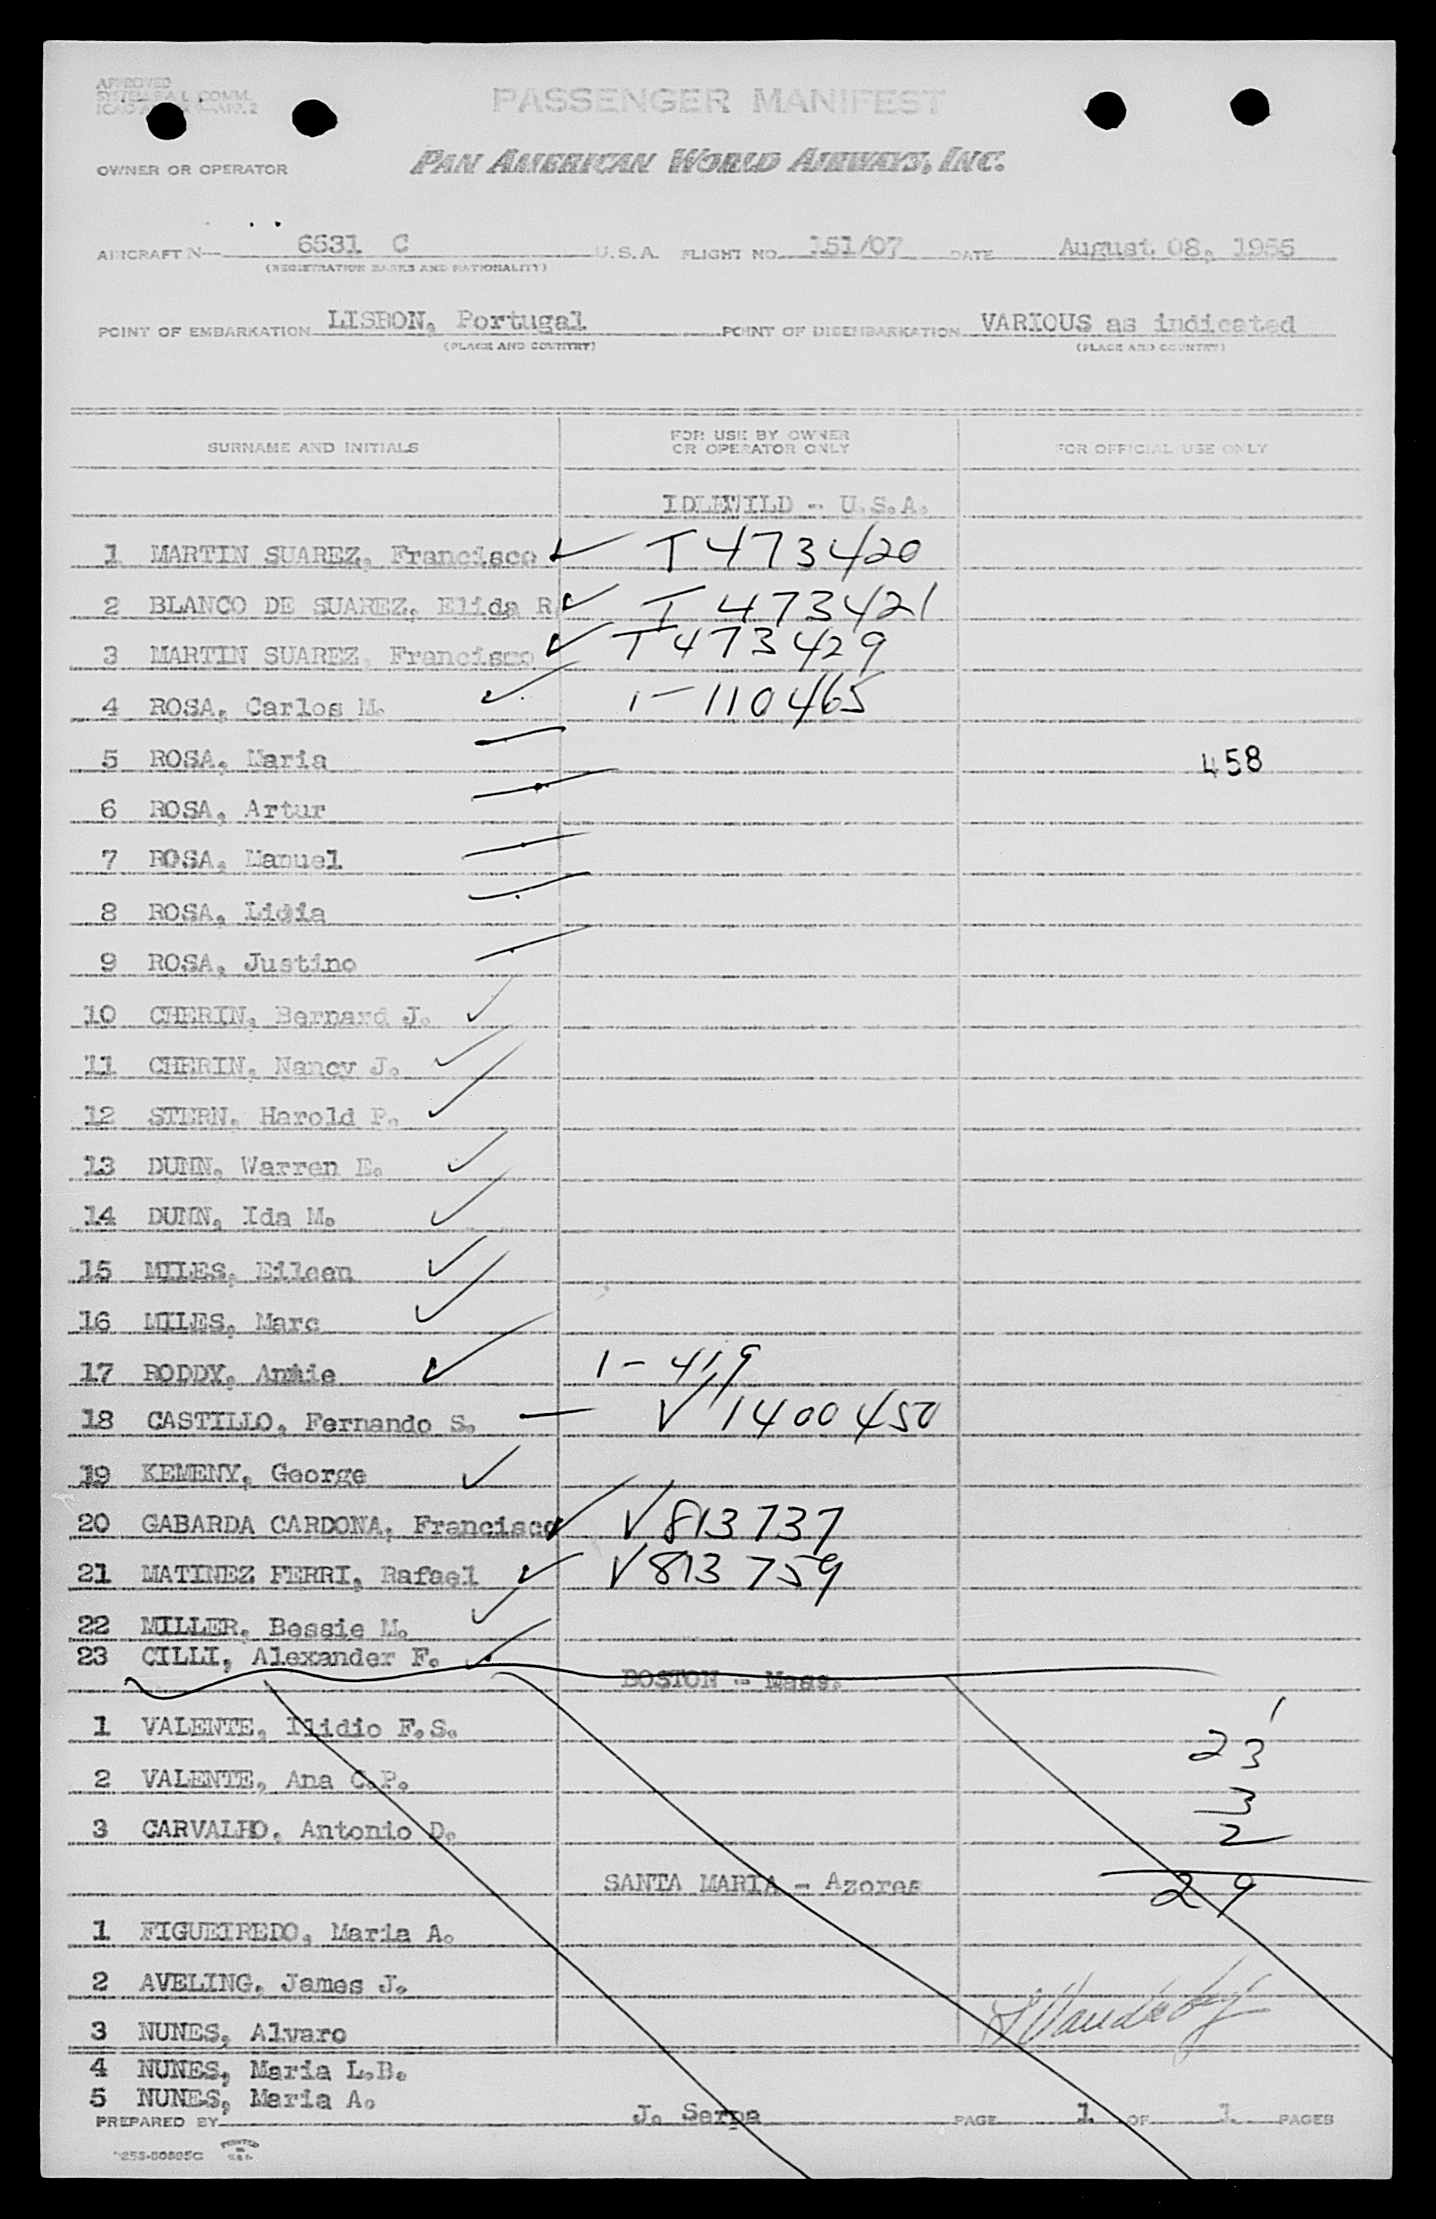 APPROVED
PASSENGER MANIFEST
OWNER OR OPERATOR PAN AMERICAN WORLD AIRWAYS, INC.
AIRCRAFT N— 6531 C U.S.A. FLIGHT NO. 151/07 DATE August 08, 1955
(REGISTRATION MARKS AND NATIONALITY)
POINT OF EMBARKATION LISBON, Portugal POINT OF DISEMBARKATION VARIOUS as indicated
(PLACE AND COUNTRY) (PLACE AND COUNTRY)
SURNAME AND INITIALS FOR USE BY OWNER OR OPERATOR ONLY FOR OFFICIAL USE ONLY
IDLEWILD - U.S.A.
1 MARTIN SUAREZ, Francisco T 473420
2 BLANCO DE SUAREZ, Elida R T 473421
3 MARTIN SUAREZ, Francisco T473429
4 ROSA, Carlos M. 1-110465
5 ROSA, Maria 458
6 ROSA, Artur
7 ROSA, Manuel
8 ROSA, Lidia
9 ROSA, Justino
10 CHERIN, Bernard J.
11 CHERIN, Nancy J.
12 STERN, Harold P.
13 DUNN, Warren E.
14 DUNN, Ida M.
15 MILES, Eileen
16 MILES, Marc
17 RODDY, Annie 1-419
18 CASTILLO, Fernando S. V 1400450
19 KEMENY, George
20 GABARDA CARDONA, Francisco V813737
21 MATINEZ FERRI, Rafael V813759
22 MILLER, Bessie M.
23 CILLI, Alexander F.
BOSTON - Mass.
1 VALENTE, Ilidio F.S. 23
2 VALENTE, Ana C.P. 3
3 CARVALHO, Antonio D. 2
SANTA MARIA - Azores 29
1 FIGUEIREDO, Maria A.
2 AVELING, James J.
3 NUNES, Alvaro
4 NUNES, Maria L.B.
5 NUNES, Maria A.
PREPARED BY J. Serpa PAGE 1 OF 1 PAGES
PRINTED IN U.S.A.